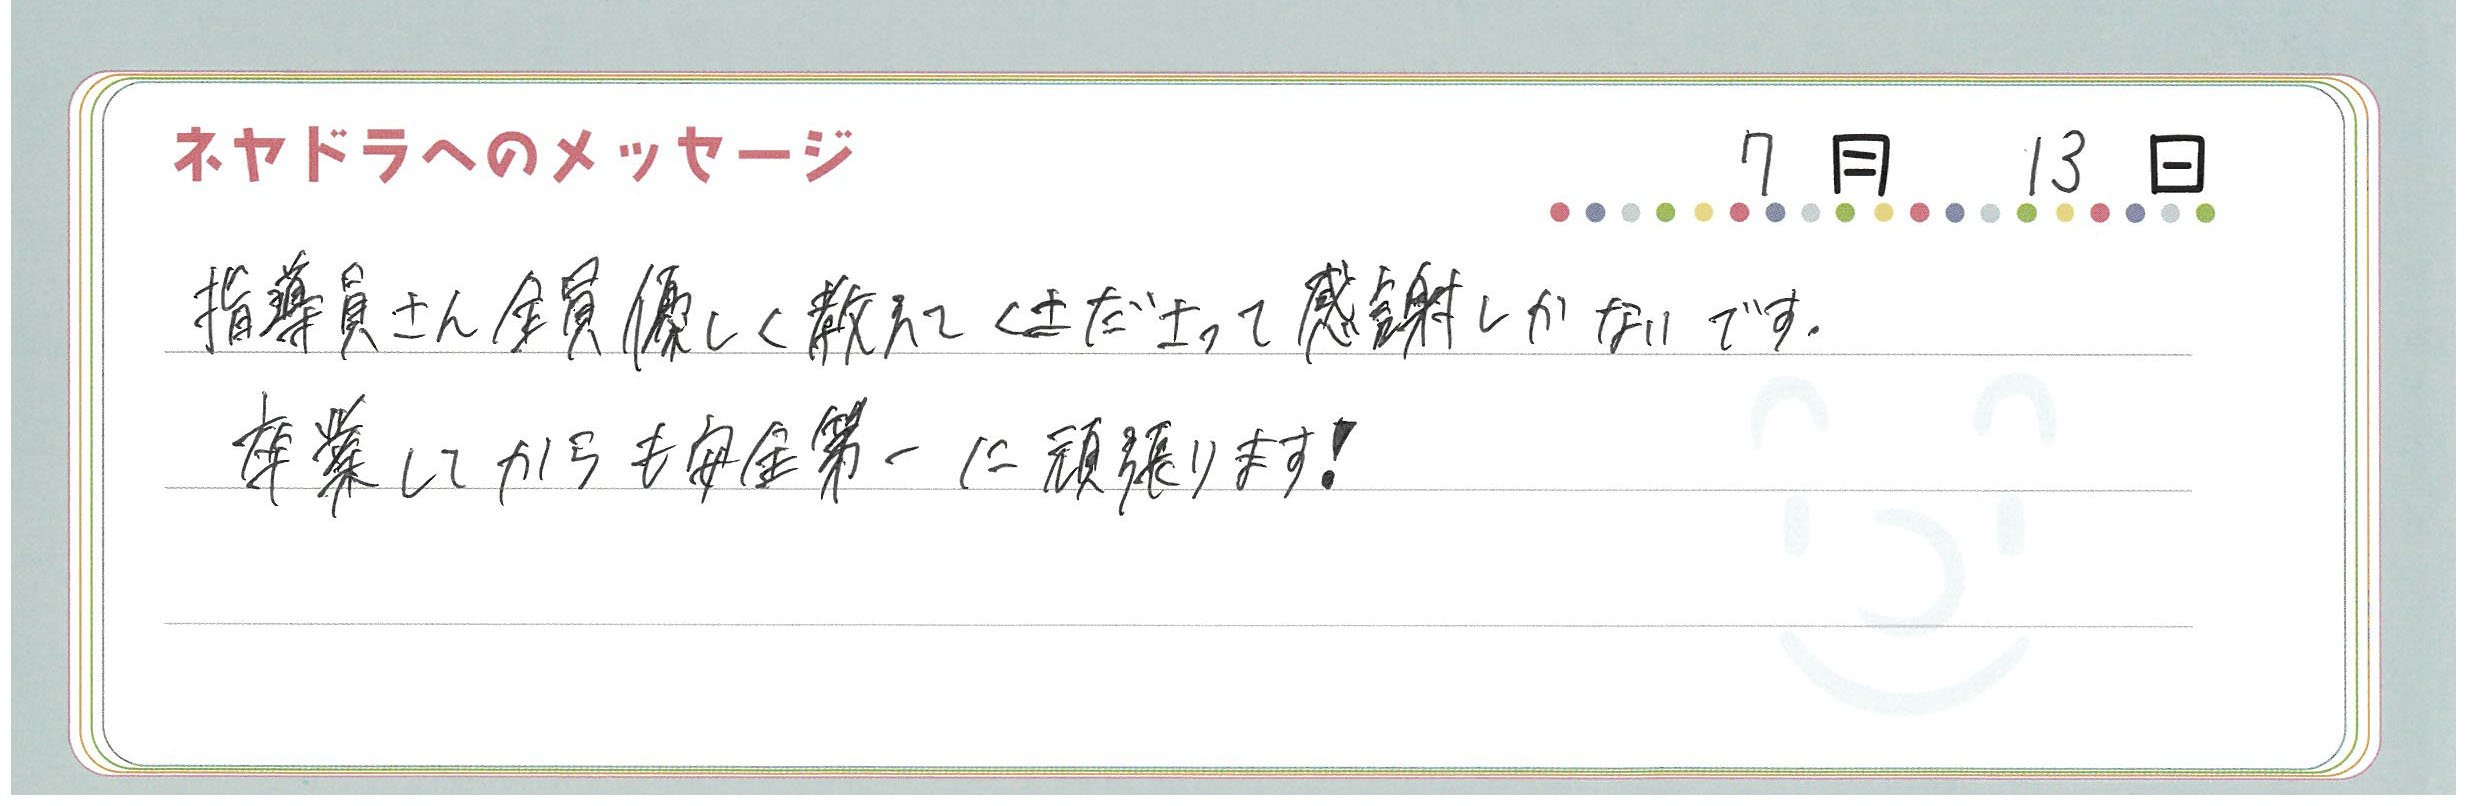 ネヤドラへのメッセージ
7月 13日
指導員さん全員優しく教えてくさださって感謝しかないです.
卒業してからも安全第一に頑張ります!